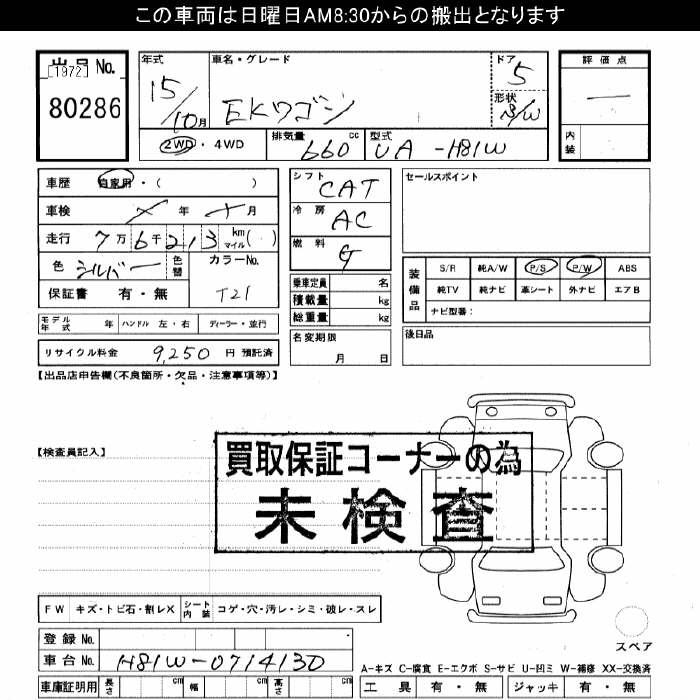 この車両は日曜日AM8:30からの搬出となります
出品 No.
[1972]
80286
年式
15/10月
車名・グレード
EKワゴン
ドア
5
形状
S/W
評価点
―
内装
2WD・4WD
排気量
660 cc
型式
UA-H81W
車歴 自家用・( )
車検 年 月
走行 7万6千213 km マイル( )
色 シルバー 色替
カラーNo.
T21
保証書 有・無
モデル年式 年 ハンドル 左・右 ディーラー・並行
リサイクル料金 9,250 円 預託済
シフト CAT
冷房 AC
燃料 G
乗車定員 名
積載量 kg
総重量 kg
名変期限
月 日
セールスポイント
装備品
S/R 純A/W P/S P/W ABS
純TV 純ナビ 革シート 外ナビ エアB
ナビ型番:
後日品
【出品店申告欄(不良箇所・欠品・注意事項等)】
【検査員記入】
買取保証コーナーの為
未検査
FW キズ・トビ石・割レX シート内装 コゲ・穴・汚レ・シミ・破レ・スレ
登録 No.
車台 No. H81W-0714130
車庫証明用 長さ cm 幅 cm 高さ cm
スペア
A-キズ C-腐食 E-エクボ S-サビ U-凹ミ W-補修 XX-交換済
工具 有・無 ジャッキ 有・無